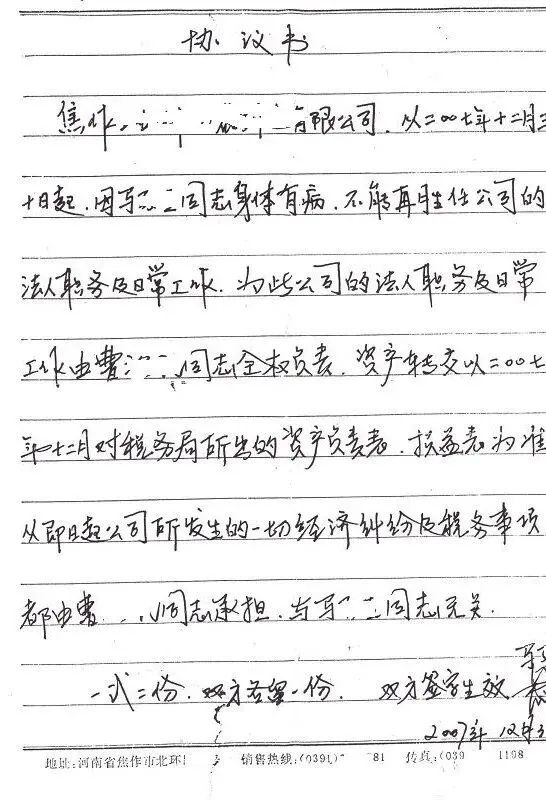 协议书
焦作 有限公司，从二00七年十二月三
十日起，因马 同志身体有病，不能再胜任公司的
法人职务及日常工作，为此公司的法人职务及日常
工作由曹 同志全权负责，资产转交以二00七
年十二月对税务局所出的资产负责表，损益表为准
从即日起公司所发生的一切经济纠纷及税务事项
都由曹 同志承担，与马 同志无关。
一式二份，双方各留一份，双方签字生效
2007年12月3
地址：河南省焦作市北环 销售热线：(0391) 81 传真：(039 1198